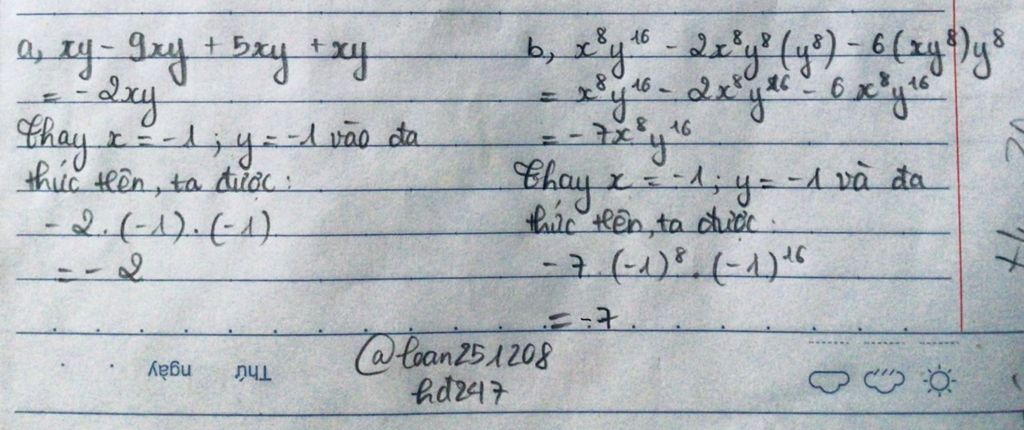 a, xy - 9xy + 5xy + xy
= - 2xy
Thay x = -1 ; y = -1 vào đa
thức trên, ta được :
- 2 . (-1) . (-1)
= - 2
b, x⁸y¹⁶ - 2x⁸y⁸(y⁸) - 6(xy⁸)y⁸
= x⁸y¹⁶ - 2x⁸y¹⁶ - 6x⁸y¹⁶
= - 7x⁸y¹⁶
Thay x = -1 ; y = -1 và đa
thức trên, ta được :
- 7 . (-1)⁸ . (-1)¹⁶
= -7
@loan251208
hđ247
Thứ ngày